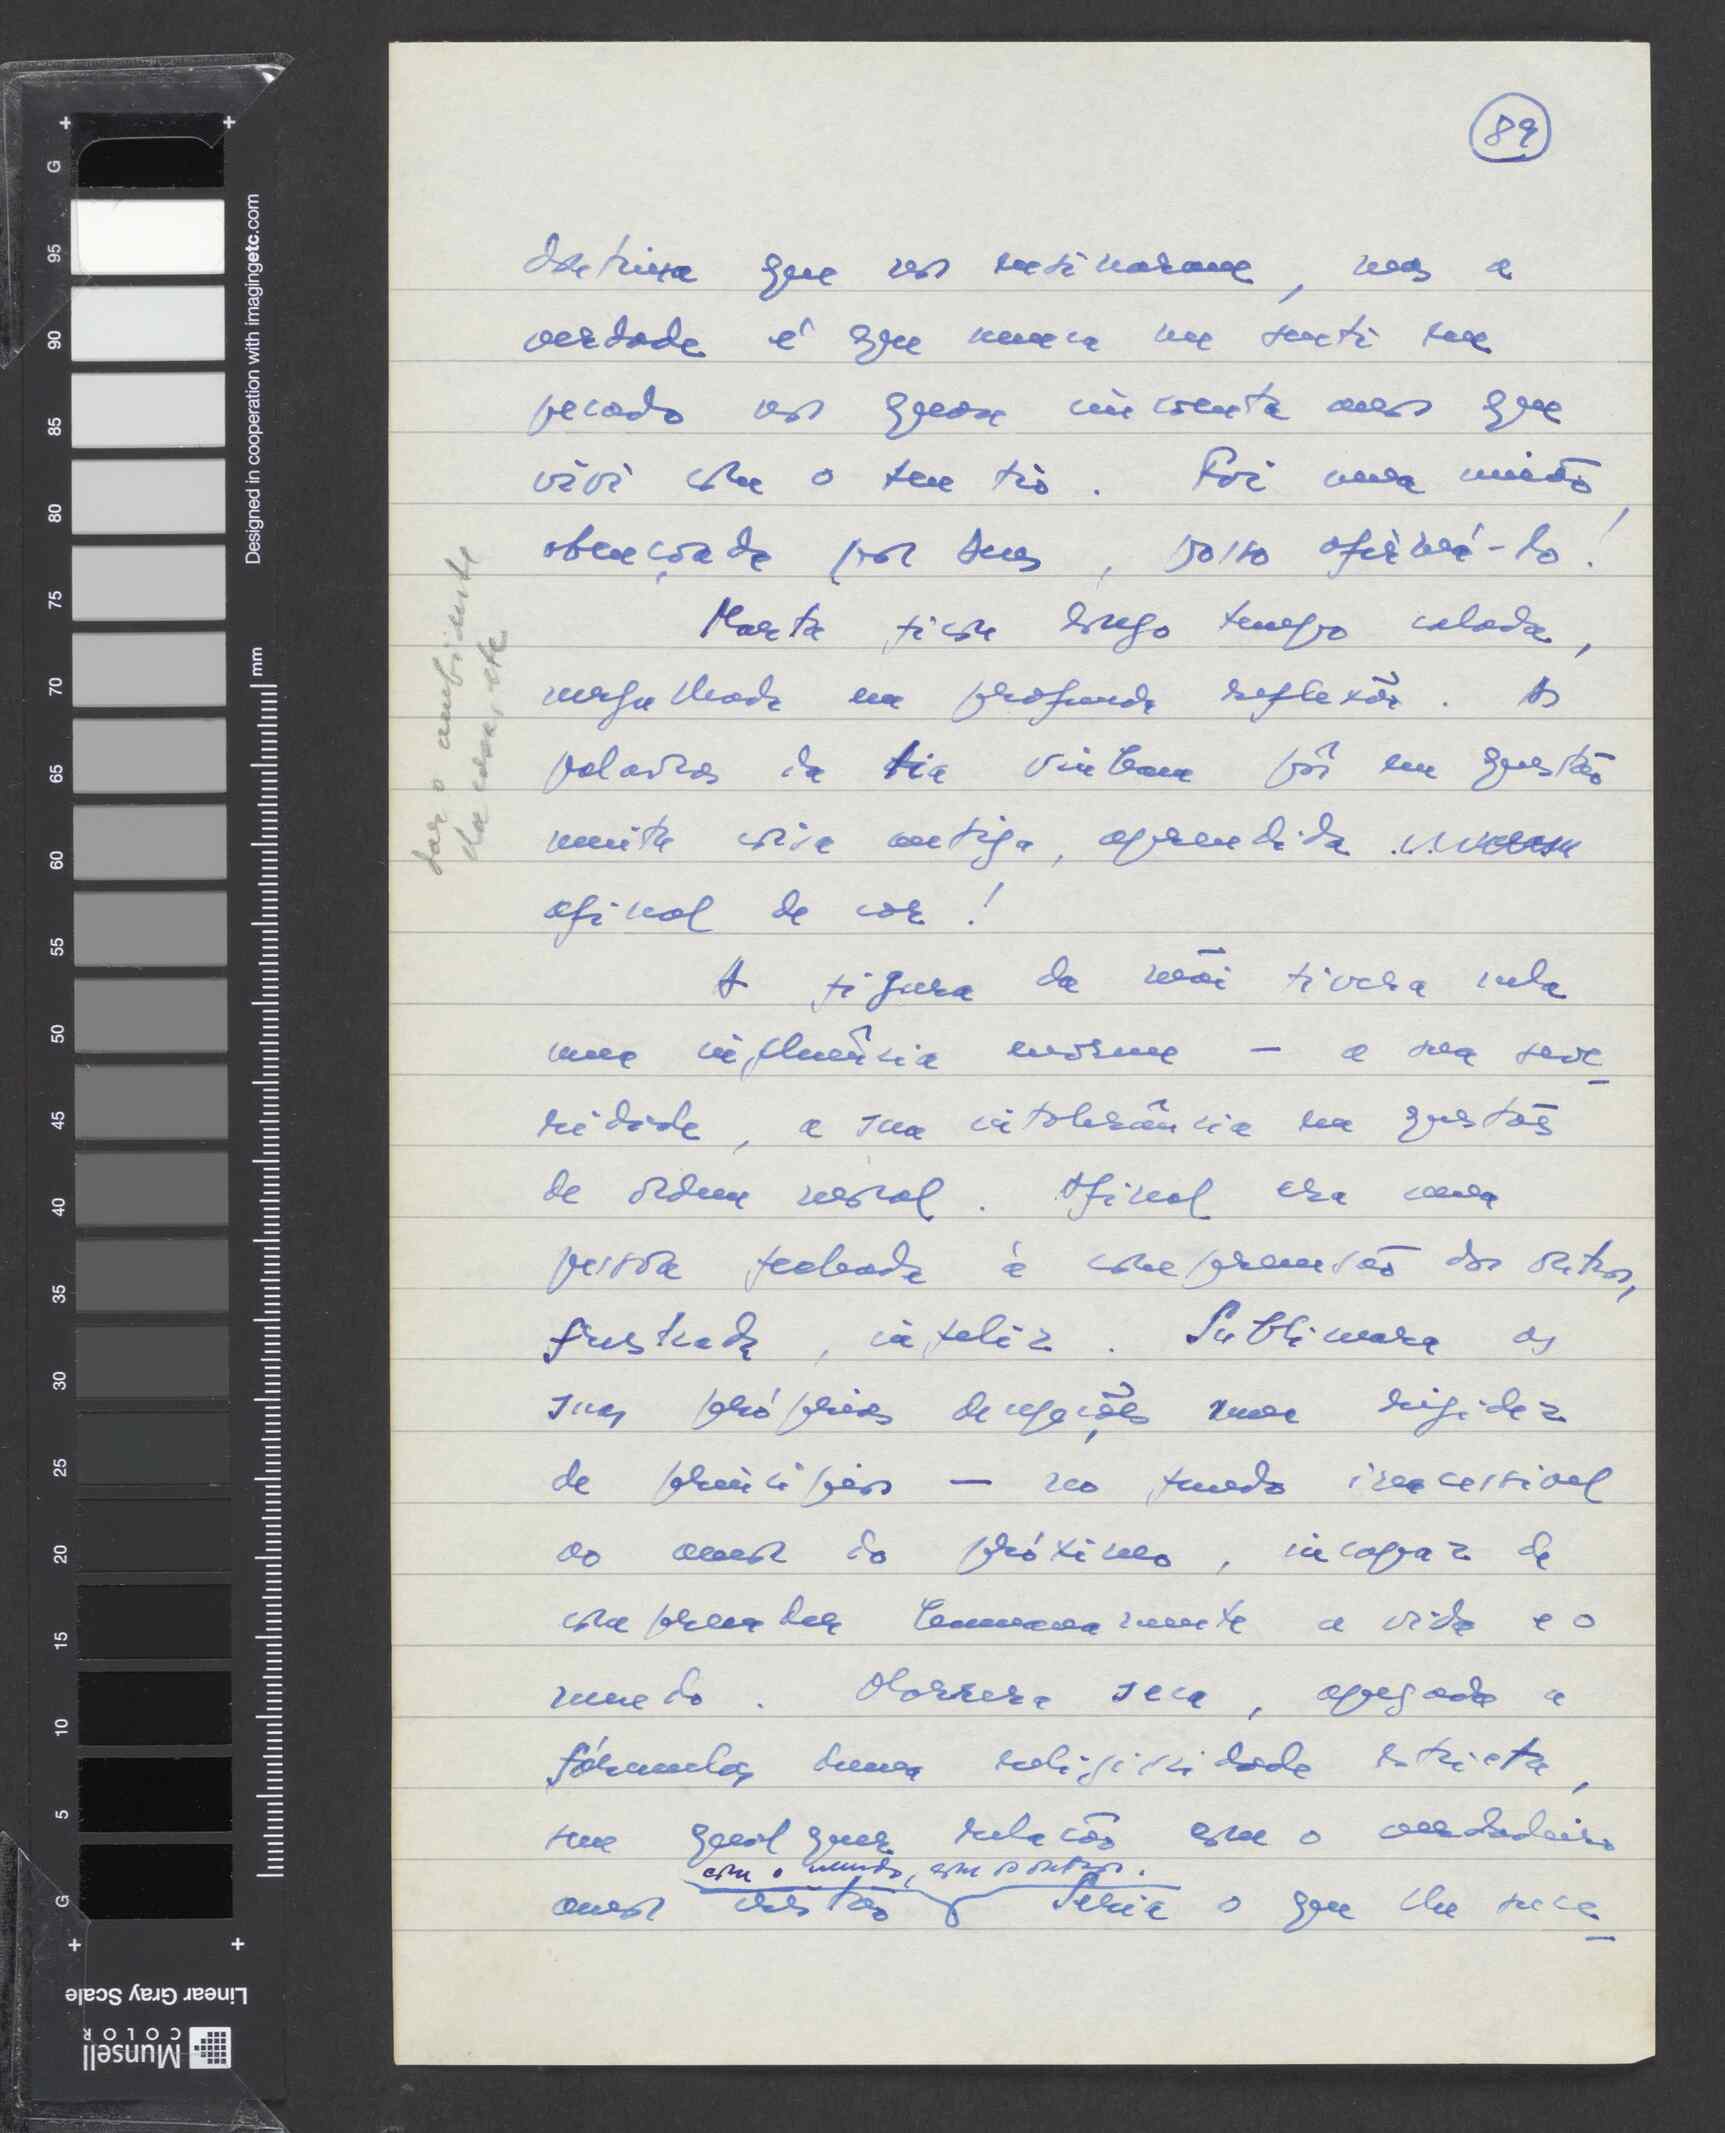 89
doutrina que nos ensinaram, mas a
verdade é que nunca me senti em
pecado nos quase cincoenta anos que
vivi com o teu tio. Foi uma união
abençoada por Deus, posso afirmá-lo!
Marta ficou longo tempo calada,
mergulhada em profunda reflexão. As
palavras da tia vinham pôr em questão
muita coisa antiga, aprendida
afinal de cor!
A figura da mãi tivera nela
uma influência enorme – a sua seve-
ridade, a sua intolerância em questões
de ordem moral. Afinal era uma
pessoa fechada à compreensão dos outros,
frustrada, infeliz. Sublimara as
suas próprias decepções numa rigidez
de princípios – no fundo inacessível
ao amor do próximo, incapaz de
compreender humanamente a vida e o
mundo. Morrera seca, apegada a
fórmulas duma religiosidade estricta,
sem qualquer relação com o verdadeiro
com o mundo, com os outros.
amor cristão Seria o que lhe suce-
dar o ambiente
da casa, etc
Designed in cooperation with imagingetc.com
mm
G
95
90
85
80
75
70
65
60
55
50
45
40
35
30
25
20
15
10
5
G
Linear Gray Scale
Munsell
COLOR